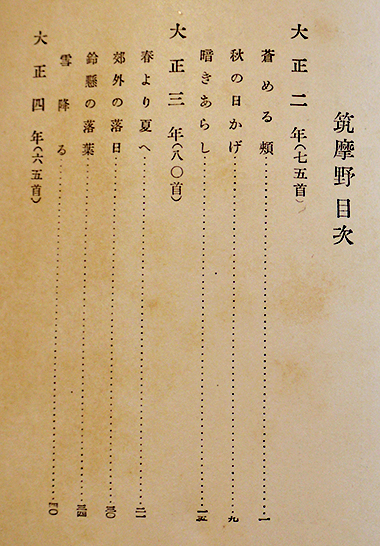 筑摩野目次
大正二年(七五首)
蒼める頬……一
秋の日かげ……九
暗きあらし……一五
大正三年(八〇首)
春より夏へ……二一
郊外の落日……三〇
鈴懸の落葉……三四
雪降る……四〇
大正四年(六五首)